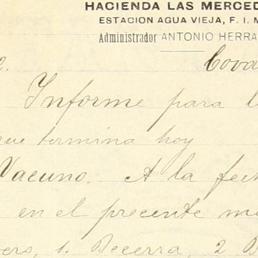 HACIENDA LAS MERCED
ESTACION AGUA VIEJA, F. I. M
Administrador ANTONIO HERRA
2. Cova
Informe para l
que termina hoy
Vacuno. A la fech
en el presente m
ers, 1. Becerra, 2 B